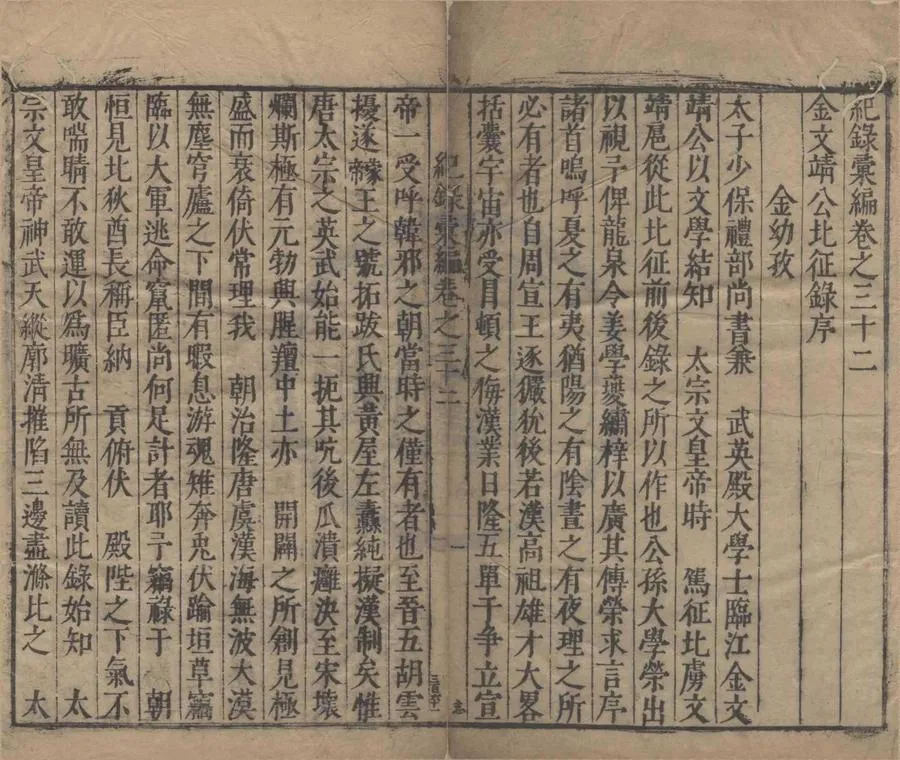 紀錄彙編卷之三十二
金文靖公北征錄序
金幼孜
太子少保禮部尚書兼　武英殿大學士臨江金文
靖公以文學結知　太宗文皇帝時　駕征北虜文
靖扈從此北征前後錄之所以作也公孫大學榮出
以視予俾龍泉令姜學夔繡梓以廣其傳榮求言序
諸首嗚呼夏之有夷猶陽之有陰晝之有夜理之所
必有者也自周宣王逐玁狁後若漢高祖雄才大畧
括囊宇宙亦受冒頓之侮漢業日隆五單于爭立宣
紀錄彙編卷之三十二
一
帝一受呼韓邪之朝當時之僅有者也至晉五胡雲
擾遂帝王之號拓跋氏興黃屋左纛純擬漢制矣惟
唐太宗之英武始能一扼其吭後瓜潰癰決至宋壞
爛斯極有元勃興腥羶中土亦　開闢之所創見極
盛而衰倚伏常理我　朝治隆唐虞漢海無波大漠
無塵穹廬之下間有暇息游魂雉奔兎伏踰垣草竊
臨以大軍逃命竄匿尚何足計者耶予竊祿于　朝
恒見北狄酋長稱臣納　貢俯伏　殿陛之下氣不
敢喘睛不敢運以爲曠古所無及讀此錄始知　太
宗文皇帝神武天縱廓清摧陷三邊盡滌比之　太